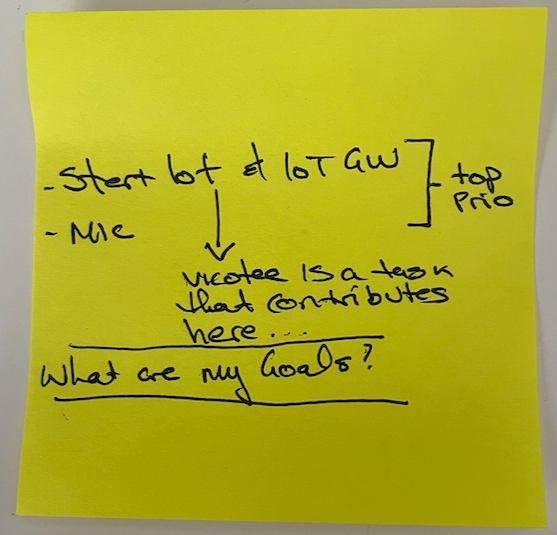 - Start lot & IoT GW
top
Prio
- MIC
is a task
that contributes
here...
What are my Goals?